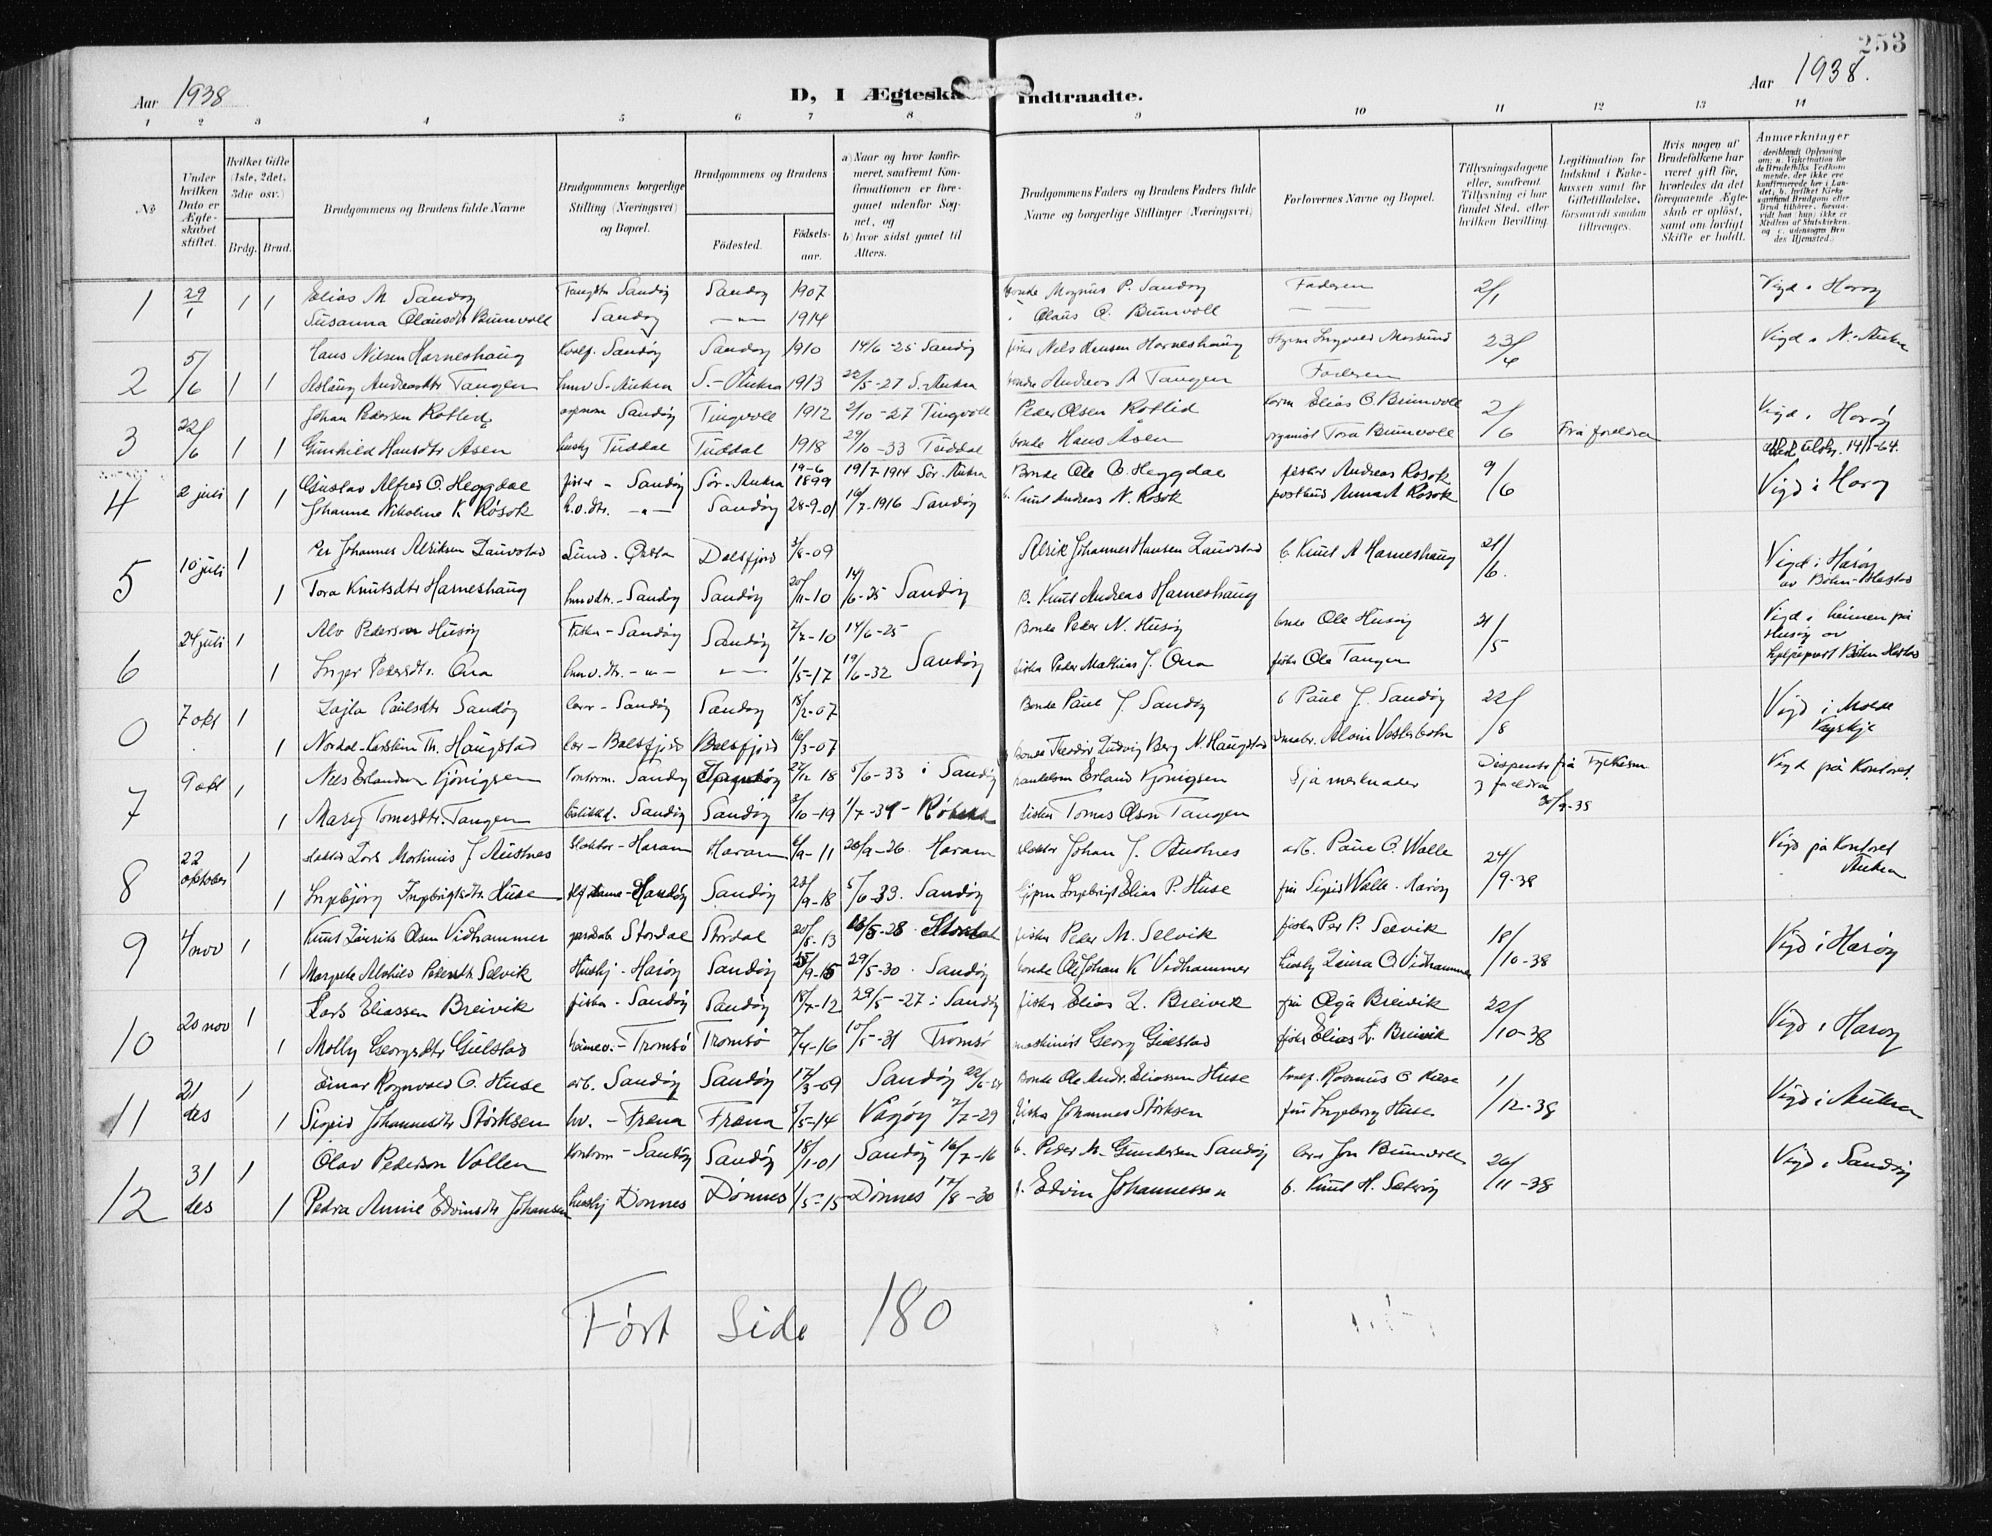 253
Aar 1938
D, I Ægteska
Indtraadte.
Aar 1938.
1 2 3 4 5 6 7 8 9 10 11 12 13 14
No
Under hvilken Dato er Ægteskabet stiftet.
Hvilket Gifte (1ste, 2det, 3die osv.)
Brdg. Brud.
Brudgommens og Brudens fulde Navne
Brudgommens borgerlige Stilling (Næringsvei) og Bopæl.
Brudgommens og Brudens
Fødested.
Fødselsaar.
a) Naar og hvor konfirmeret, saafremt Konfirmationen er foregaaet udenfor Sognet, og
b) hvor sidst gaaet til Alters.
Brudgommens Faders og Brudens Faders fulde Navne og borgerlige Stillinger (Næringsvei)
Forlovernes Navne og Bopæl.
Tillysningsdagene eller, saafremt Tillysning ei har fundet Sted, efter hvilken Bevilling.
Legitimation for Indskud i Enkekassen samt for Giftetilladelse, forsaavidt saadan tiltrænges.
Hvis nogen af Brudefolkene har været gift før, hvorledes da det foregaaende Ægteskab er opløst, samt om lovligt Skifte er holdt.
Anmærkninger
1 29/1 1 1 Elias M Sandøy Sandøy Sandøy 1907 bonde Magnus P. Sandøy Faderen 2/1 Vigd i Harøy
Susanna Olausdtr Brunvoll Sandøy —"— 1914 Olaus O. Brunvoll
2 5/6 1 1 Hans Nilsen Harneshaug Sandøy Sandøy 1910 14/6-25 Sandøy fisker Nels Hansen Harneshaug 23/4 Vigd i N.-Aukra
Aslaug Andreasdtr Tangen S.-Aukra S.-Aukra 1913 22/5-27 S.-Aukra bonde Andreas A Tangen Faderen
3 22/6 1 1 Johan Pedersen Rotlid Sandøy Tingvoll 1912 2/10-27 Tingvoll Peder Olsen Rotlid Elias O. Brunvoll 2/6 Frå foreldra Vigd i Harøy
Gunhild Hansdtr Åsen Tuddal Tuddal 1918 29/10-33 Tuddal bonde Hans Åsen organist Tora Brunvoll 14/1-64.
4 2 juli 1 1 Gustav Alfred O. Heggdal fisker - Sandøy Sør-Aukra 19-6 1899 19/7 1914 Sør-Aukra Bonde Ole O. Heggdal fisker Andreas Rosok 9/6 Vigd i Harøy
Johanne Nikoline K. Rosok —"— Sandøy 28-9-01 16/7-1916 Sandøy Knut Andreas N. Rosok postbud Anna A Rosok
5 10 juli 1 Per Johannes Alriksen Lauvstad Ørsta Dalsfjord 3/8-09 Alrik Johannes Hansen Lauvstad b. Knut A Harneshaug 21/6. Vigd i Harøy
1 Tora Knutsdtr Harneshaug Sandøy Sandøy 20/11-10 14/6-25 Sandøy B. Knut Andreas Harneshaug
6 24 juli 1 Alv Pederson Husøy Fisker - Sandøy Sandøy 7/7-10 14/6-25 Bonde Peder N. Husøy bonde Ole Husøy 21/5 Vigd i heimen på Husøy av
1 Inger Pedersdtr. Ona —"— —"— 1/5-17 19/6-32 Sandøy fisker Peder Mathias J. Ona fisker Ole Tangen
0 7 okt 1 Lajla Paulsdtr Sandøy Sandøy Sandøy 18/2-07 Bonde Paul J. Sandøy b Paul J. Sandøy 22/8 Vigd i Molde
1 Nordal-Karstein Th. Haugstad Balsfjord Balsfjord 16/3-07 bonde Teodor Ludvig Berg N. Haugstad
7 9 okt 1 Nils Erlandsen Kjønigsen Sandøy 5/6-33 i Sandøy Erland Kjønigsen Sjå merknader Dispensert frå og foreldra Vigd på Kontoret.
1 Mary Tomesdtr. Tangen Sandøy Sandøy 3/10-19 1/7-34 - fisker Tomas Olsen Tangen
8 22 oktober 1 Lars Martinus J Austnes Slakter - Haram Haram 6/9-11 26/9-26. Haram slakter Johan J. Austnes arb. Paul O. Walle 24/9-38 Vigd på Kontoret Aukra
1 Ingebjørg Ingebrigtsdtr. Huse Sandøy 23/9-18 5/6-33. Sandøy Ingebrigt Elias P. Huse fru Sigrid Walle. Harøy
9 4/nov 1 Knut Laurits Olsen Vidhammer Stordal Stordal 20/5-13 28/5-28. Stordal fisker Peder M. Selvik fisker Per P. Selvik 18/10-38 Vigd i Harøy
1 Margrete Alvhild Pedersdtr Selvik Harøy Sandøy 25/9-15 29/5-30. Sandøy bonde Ole Johan K Vidhammer Laura O. Vidhammer
10 20 nov 1 Lars Eliassen Breivik fisker - Sandøy Sandøy 18/7-12 29/5-27 i Sandøy fisker Elias L. Breivik fru Olga Breivik 22/10-38 Vigd i Harøy
1 Molly Georgsdtr Gulstad Tromsø Tromsø 7/4-16 10/5-31 Tromsø maskinist Georg Gulstad fisker Elias L. Breivik
11 21 des 1 Einar Rognvald O. Huse arb. Sandøy Sandøy 17/3-09 Sandøy Bonde Ole Andr. Eliassen Huse Rasmus O Huse 1/12-38 Vigd i Aukra
1 Sigrid Johannesdtr Storksen hv. - Fræna Fræna 5/5-14 Vågøy 7/7-29 fisker Johannes Storksen fru Ingeborg Huse
12 31 des 1 Olav Pederson Vollen Sandøy Sandøy 18/1-01 Sandøy 16/7-16 b. Peder M. Gundersen Sandøy Jon Brunvoll 26/11-38 Vigd i Sandøy
1 Petra Annie Edvinsdtr Johansen Dønnes Dønnes 1/5-15 Dønnes 17/8-30 f. Edvin Johannessen b. Knut H. Sæterøy
Ført Side 180